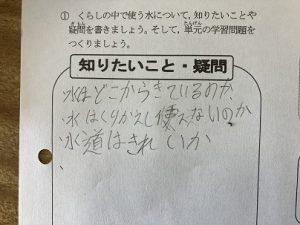 ① くらしの中で使う水について，知りたいことや
疑問を書きましょう。そして，単元の学習問題を
つくりましょう。
知りたいこと・疑問
水はどこからきているのか
水はくりかえし使えないのか
水道はきれいか